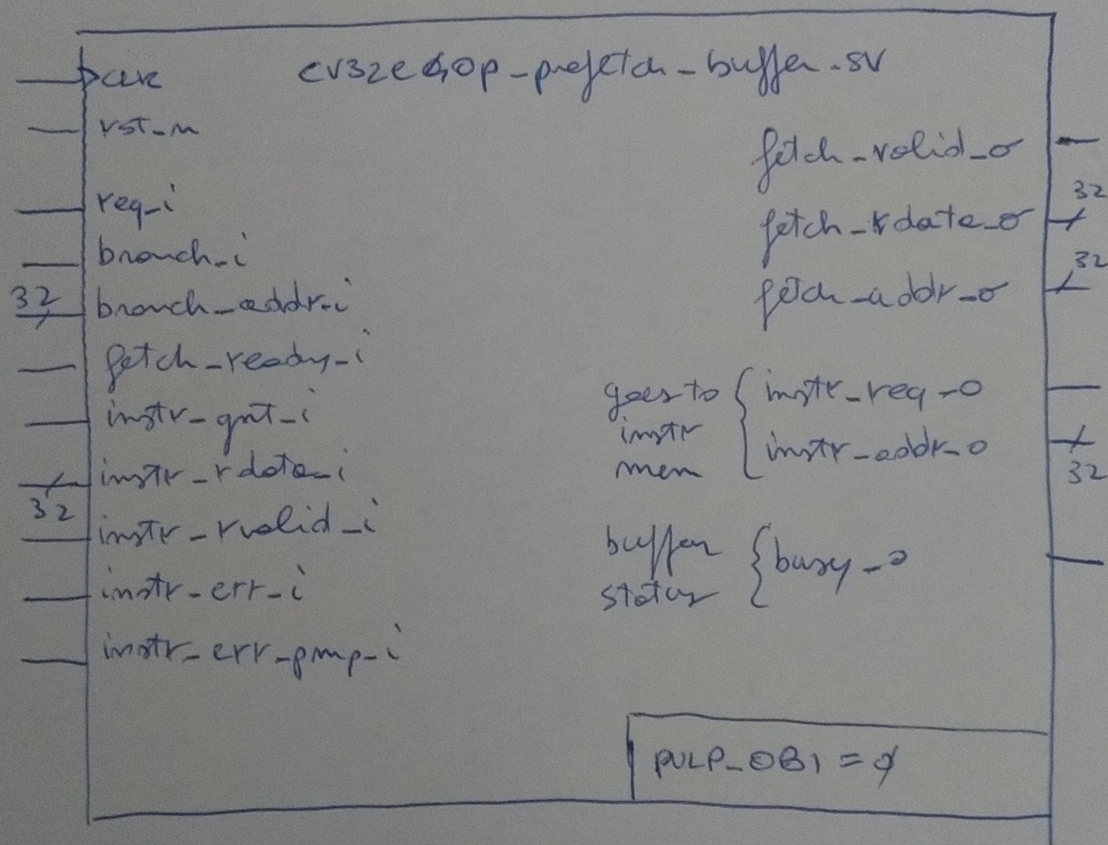 cv32e40p_prefetch_buffer.sv
clk
rst_n
req_i
branch_i
32
branch_addr_i
fetch_ready_i
instr_gnt_i
instr_rdata_i
32
instr_rvalid_i
instr_err_i
instr_err_pmp_i
fetch_valid_o
32
fetch_rdata_o
32
fetch_addr_o
goes to
instr
mem
instr_req_o
instr_addr_o
32
buffer
status
busy_o
PULP_OBI = 0